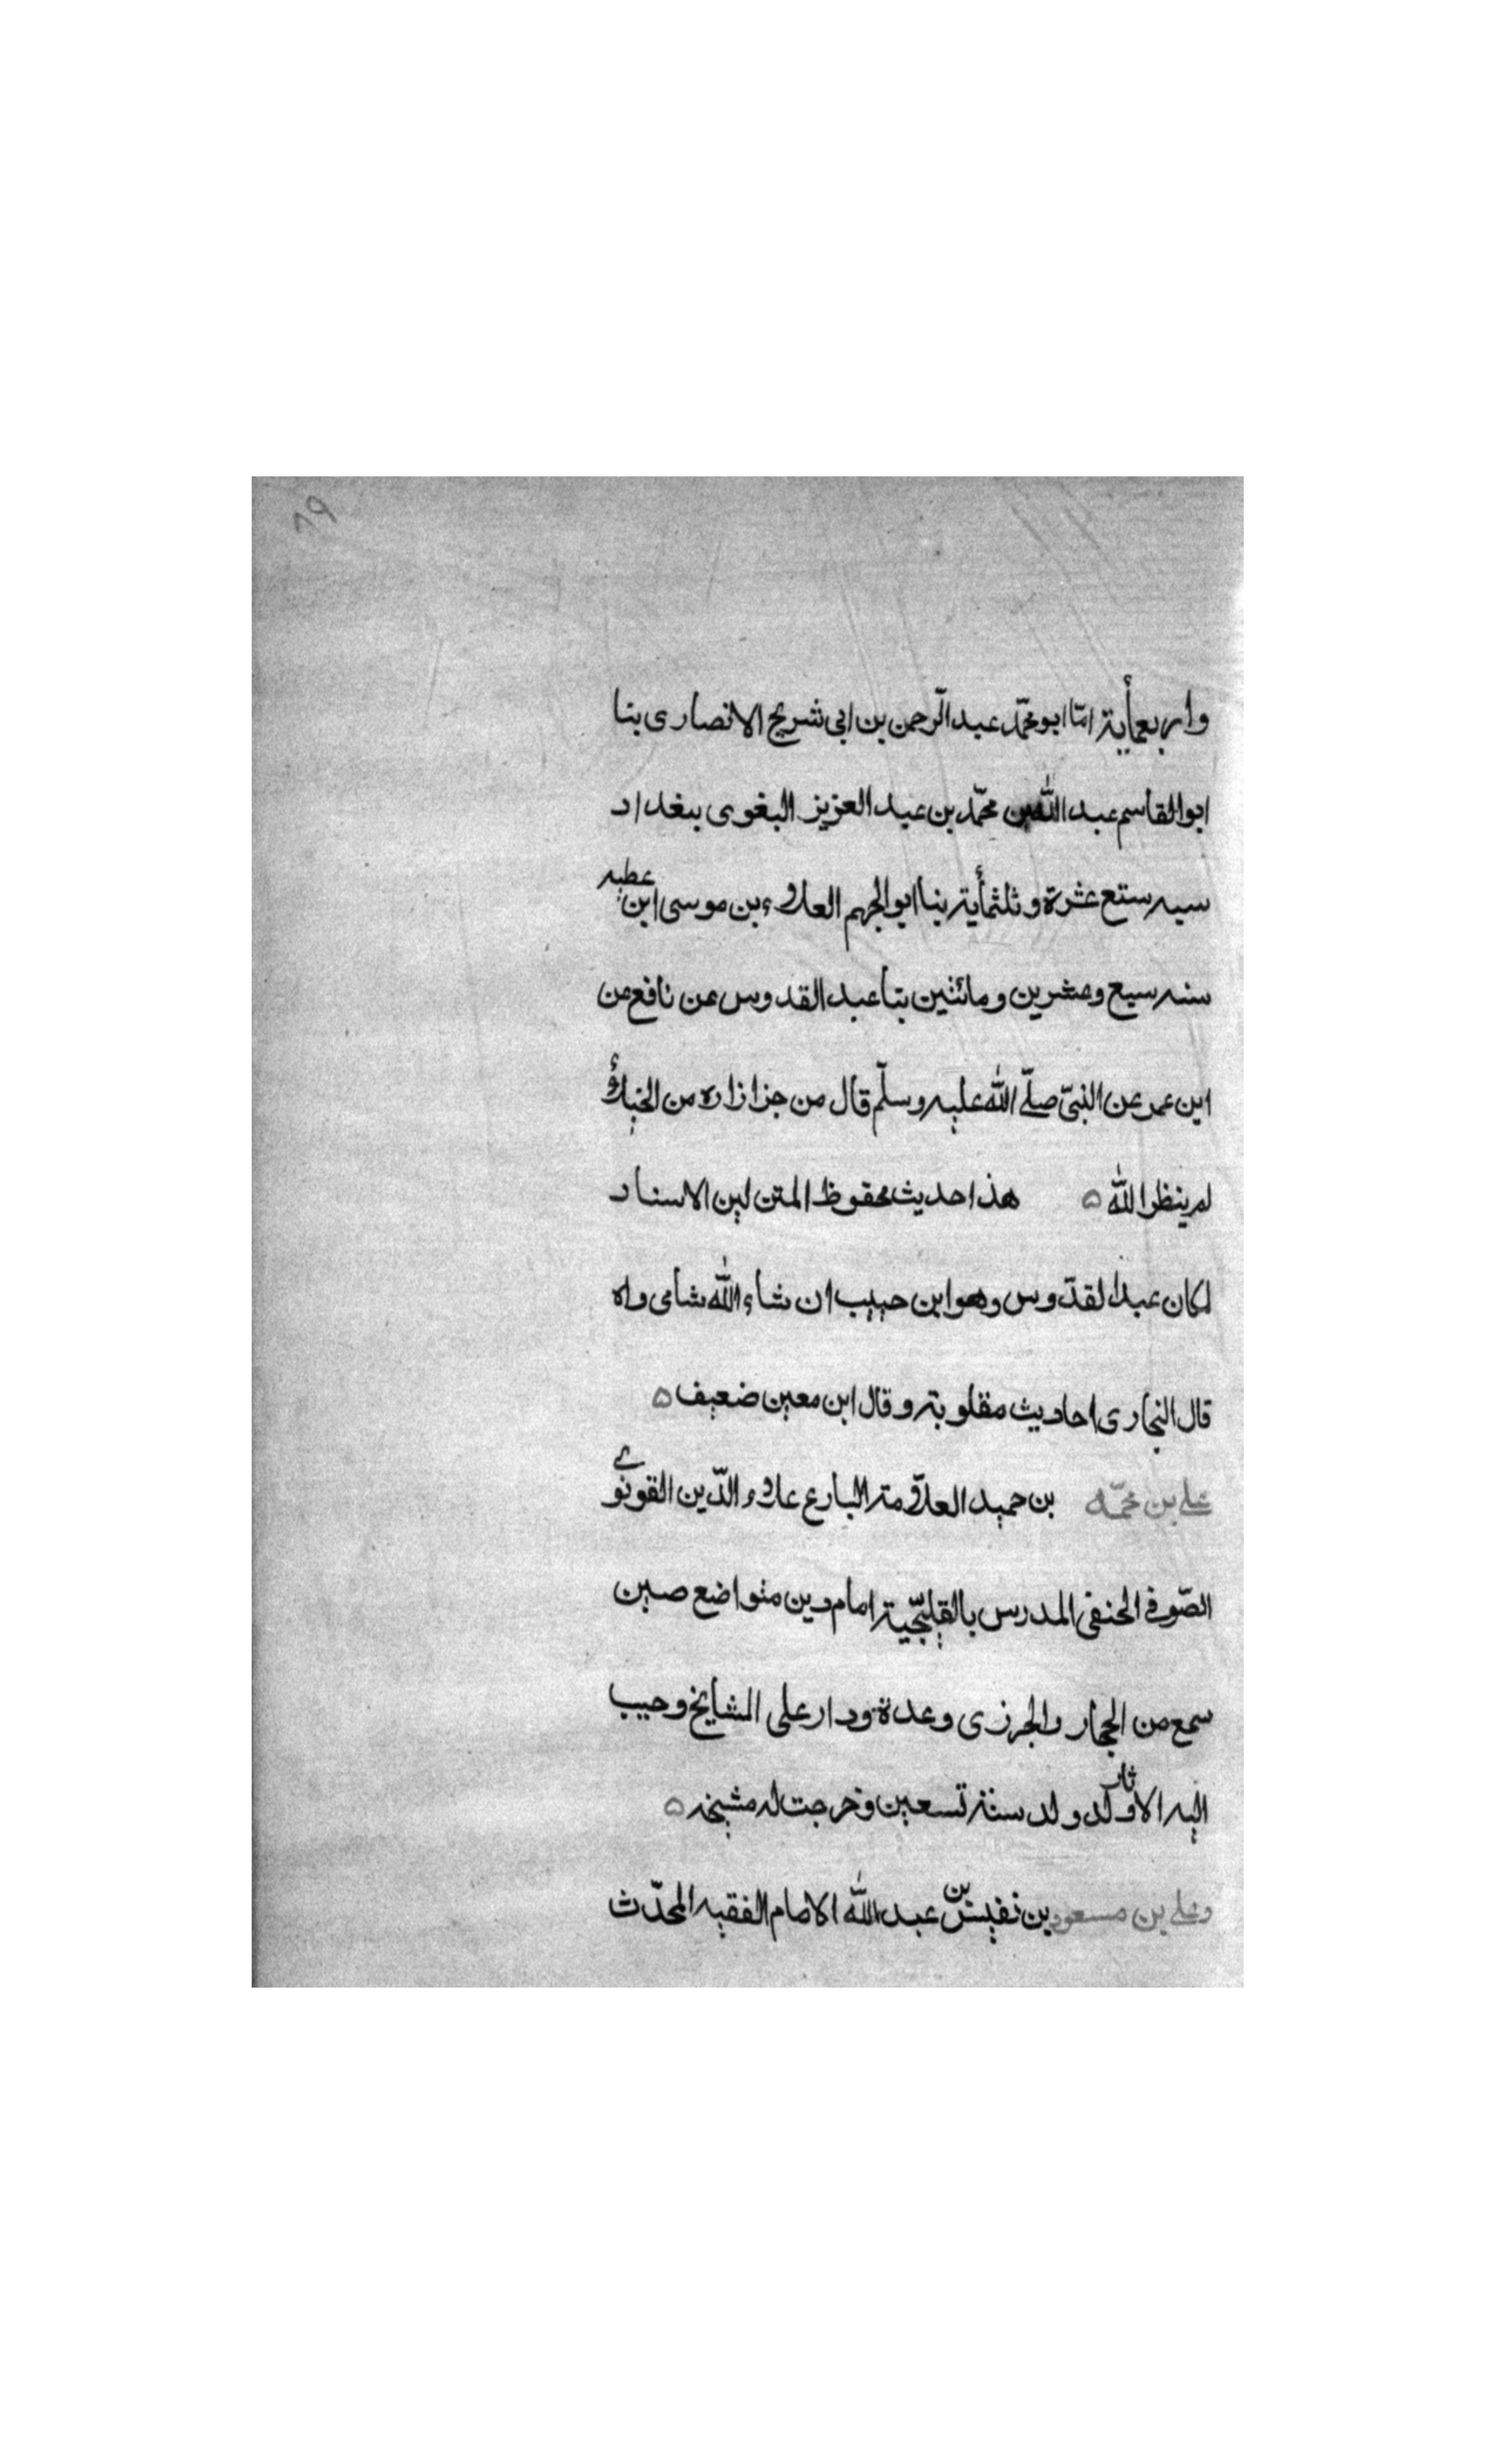 ٨٩
واربعمأية امّا ابو محمّد عبد الرّحمن بن ابى شريح الانصارى بنا
ابو القاسم عبد الله بن محمّد بن عبد العزيز البغوى ببغداد
سيه ستع عشرة و ثلثمأية بنا ابو الجهم العلاء بن موسى ابن عطيه
سنه سبع وعشرين و مائتين بنا عبد القدوس عن نافع عن
ابن عمر عن النبىّ صلّى الله عليه وسلّم قال من جزازاره من الخيلاء
لم ينظر الله ه هذا حديث محفوظ المتن لين الاسناد
لمكان عبد القدّوس وهو ابن حبيب ان شاء الله شامى واه
قال النجارى احاديث مقلوبة وقال ابن معين ضعيف ه
على بن محمّد بن حميد العلاّمة البارع علاء الدّين القونوى
الصّوفى الحنفى المدرس بالقليجيّة امام دين متواضع صين
سمع من الحجار والجرزى وعدة ودار على المشايخ وحبب
اليه الاثار ولد ولد سنة تسعين وخرجت له مشيخه ه
وعلى بن مسعود بن نفيس بن عبد الله الامام الفقيه المحدّث